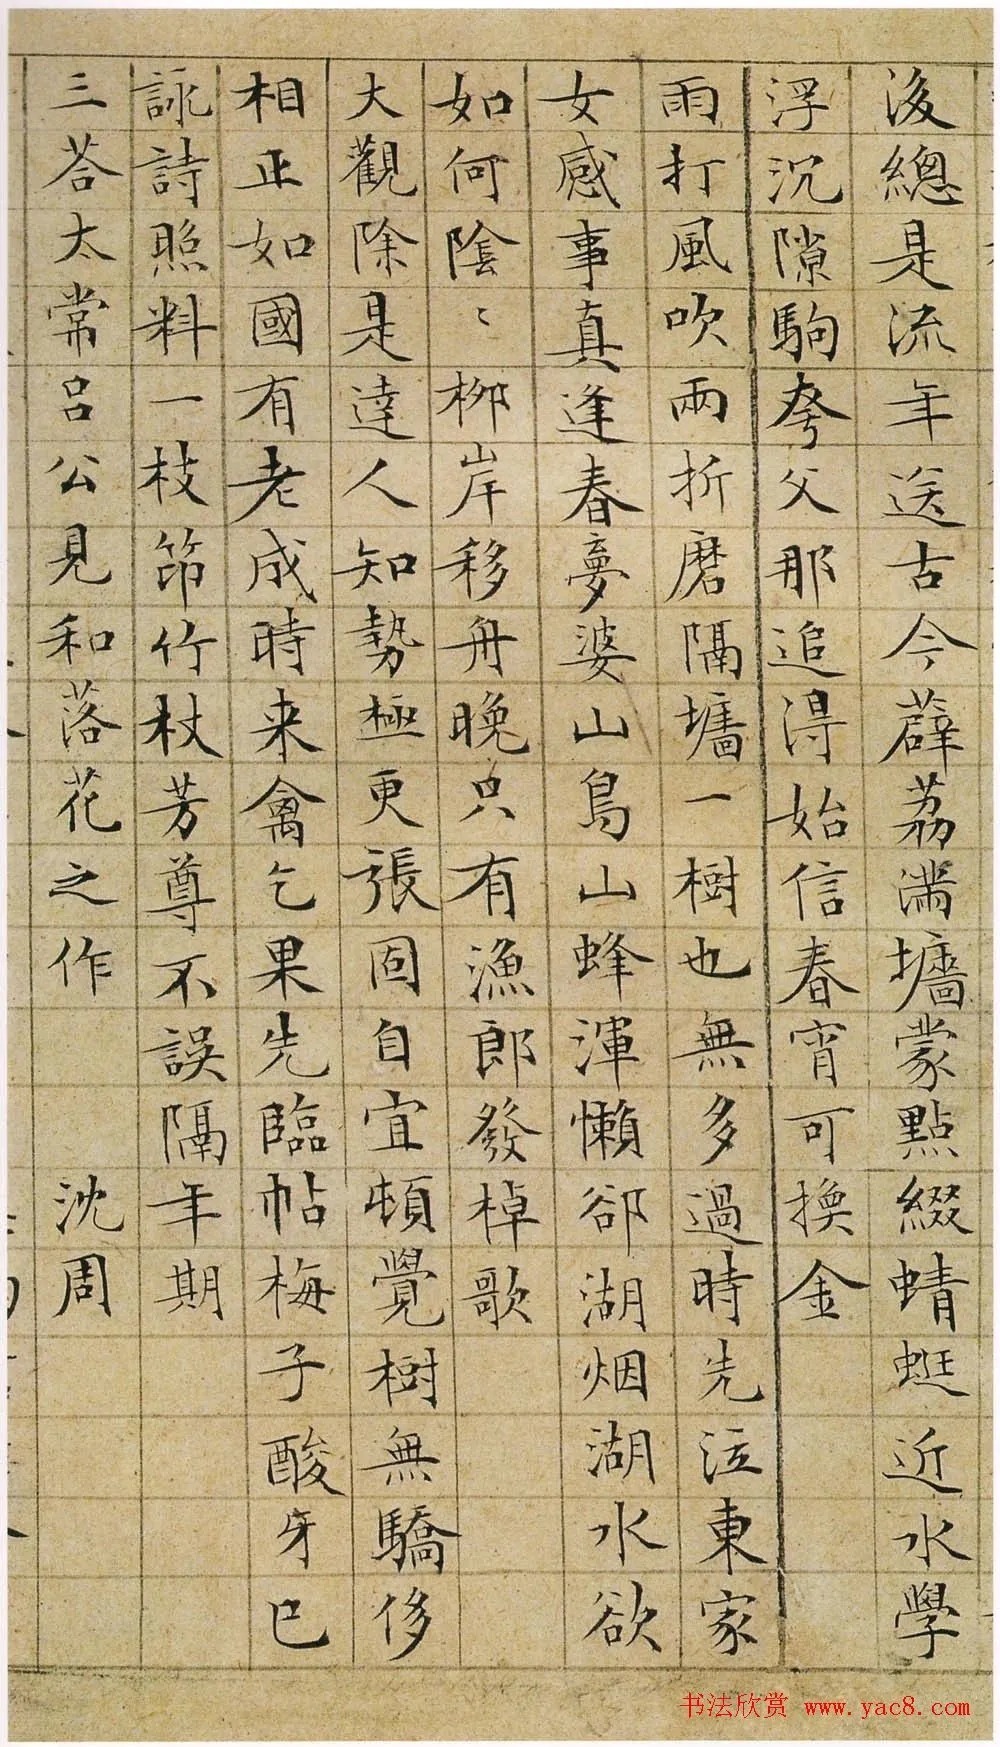 後總是流年送古今薜荔滿墻蒙點綴蜻蜓近水學
浮沉隙駒夸父那追得始信春宵可換金
雨打風吹兩折磨隔墻一樹也無多過時先泣東家
女感事真逢春夢婆山鳥山蜂渾懶卻湖烟湖水欲
如何陰〻柳岸移舟晚只有漁郎發棹歌
大觀除是達人知勢極更張固自宜頓覺樹無驕侈
相正如國有老成時来禽乞果先臨帖梅子酸牙已
詠詩照料一枝笻竹杖芳尊不誤隔年期
三荅太常呂公見和落花之作 沈周
书法欣赏 www.yac8.com